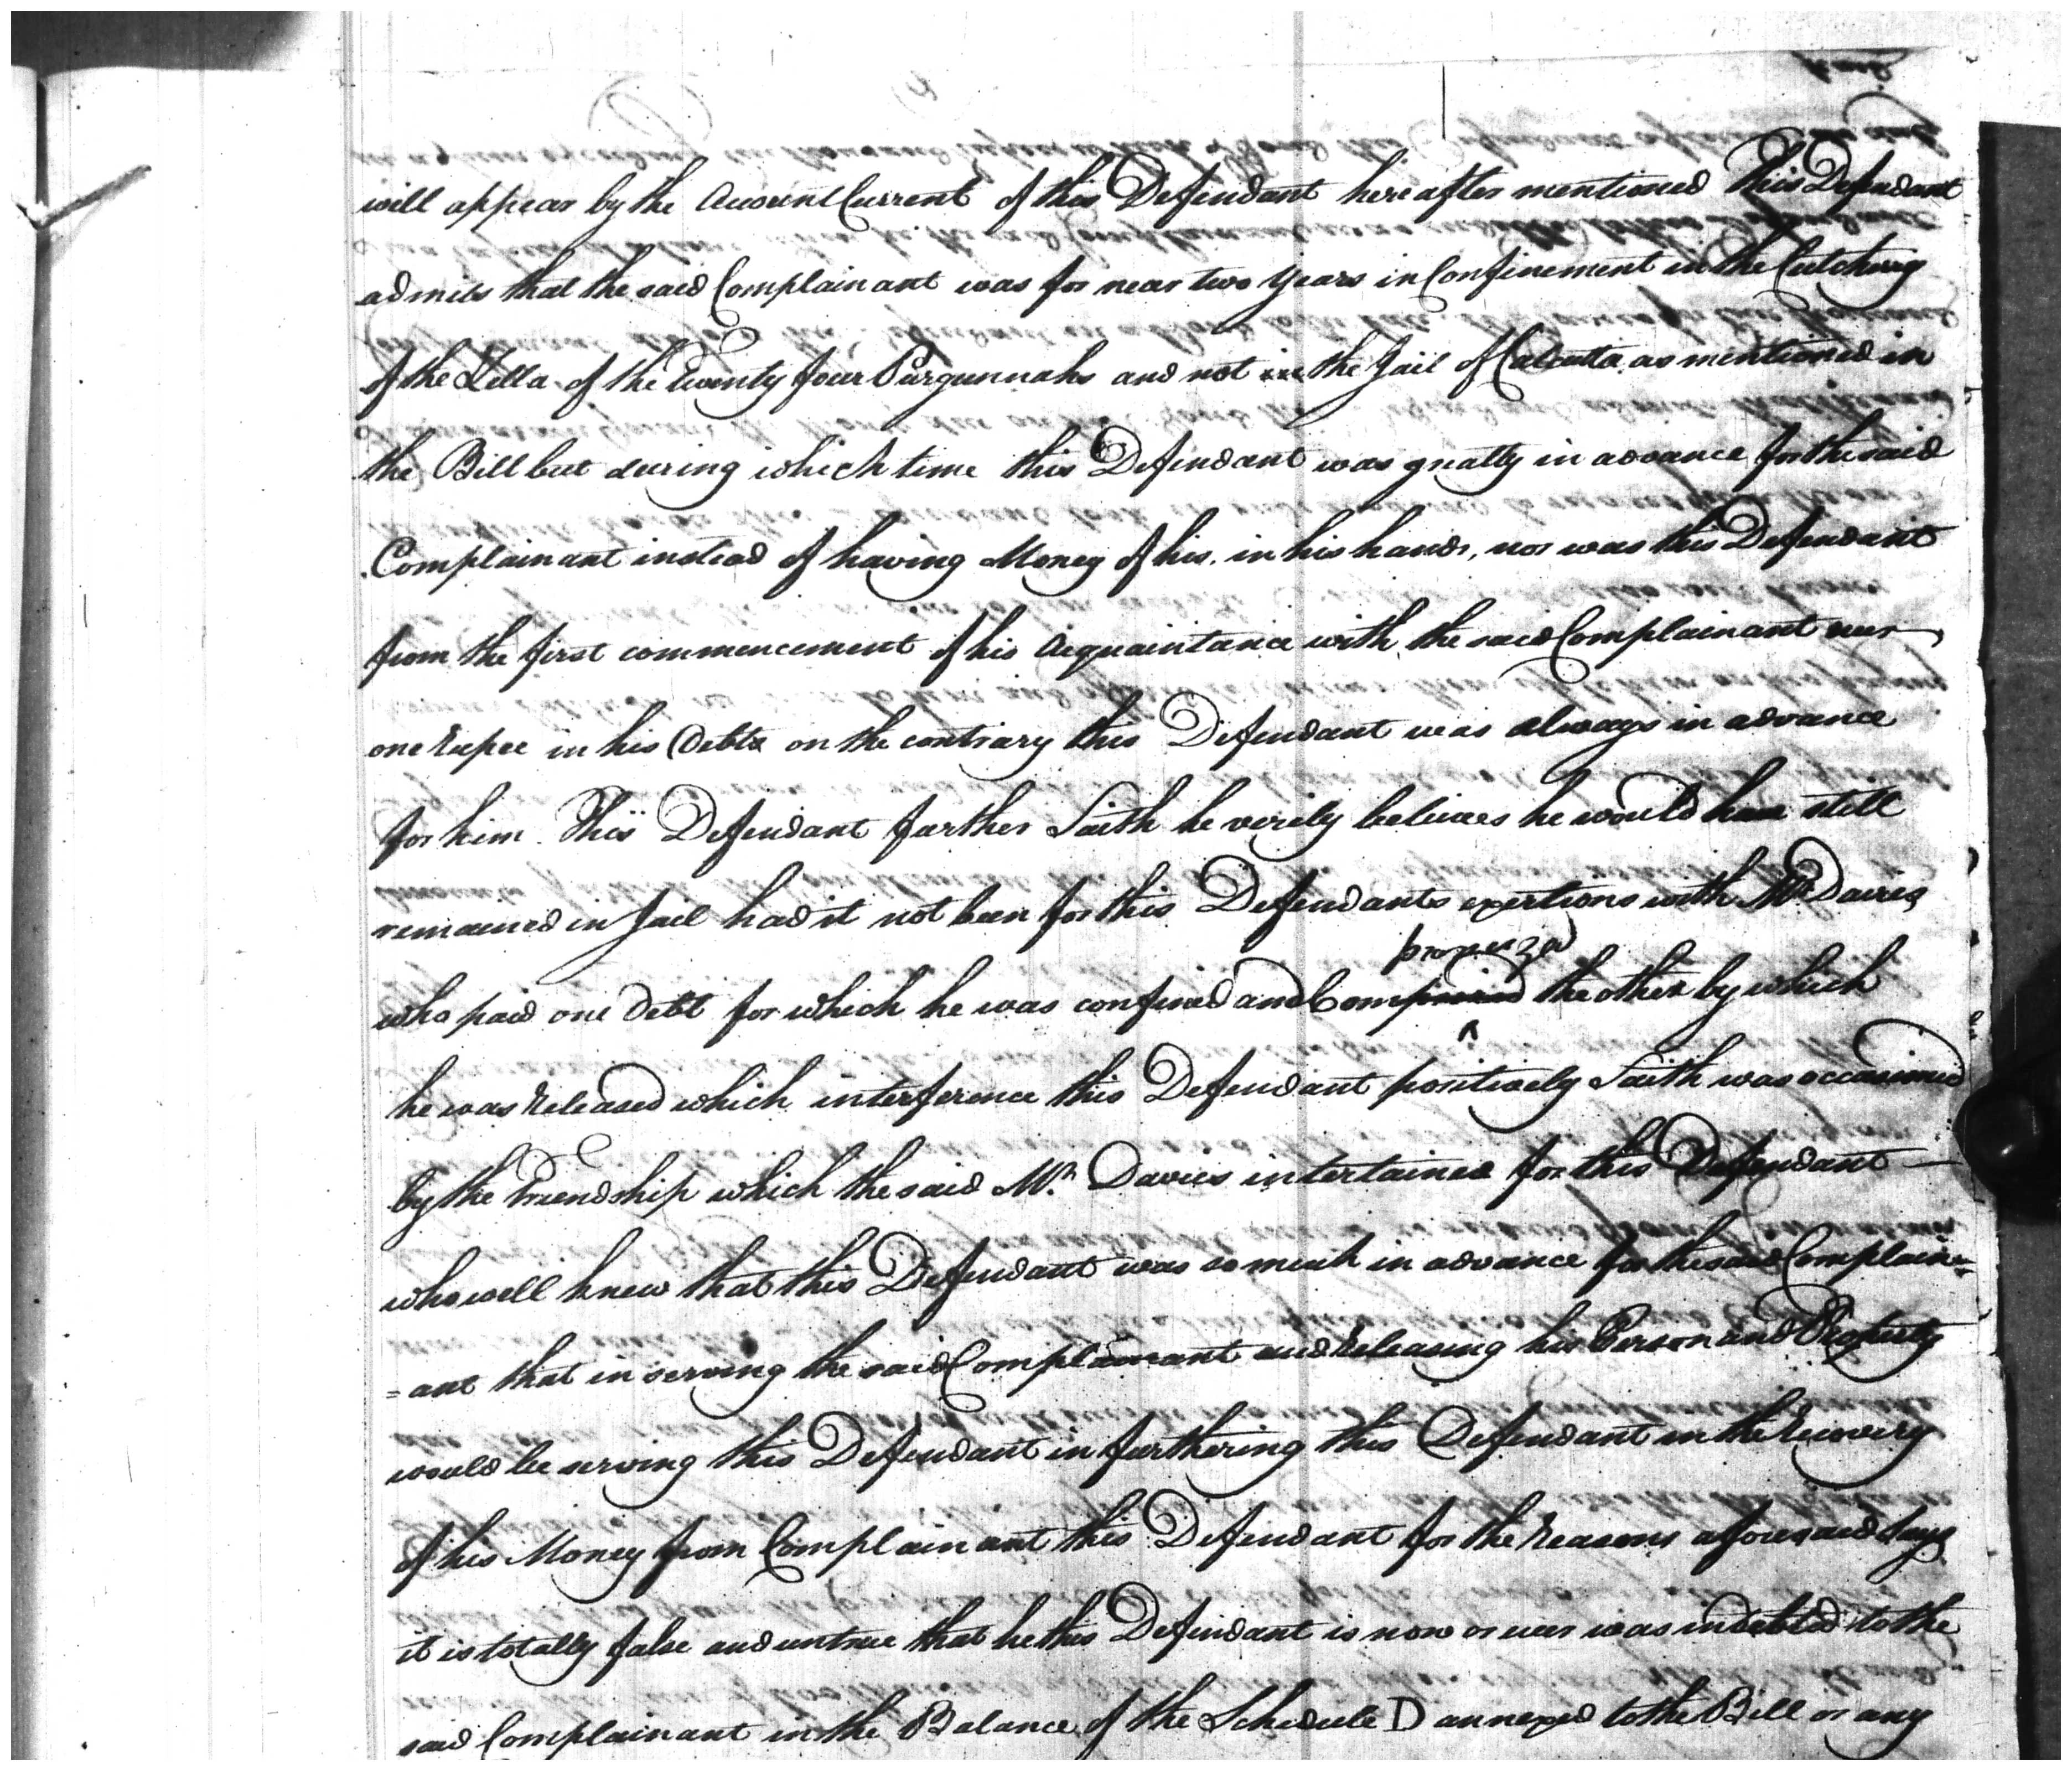 will appear by the Account Current of this Defendant hereafter mentioned This Defendant
admits that the said Complainant was for near two years in Confinement in the Cutcherry
of the Zella of the Twenty four Purgunnahs and not in the Jail of Calcutta as mentioned in
the Bill but during which time this Defendant was greatly in advance for the said
Complainant instead of having Money of his in his hands, nor was this Defendant
from the first commencement of his Acquaintance with the said Complainant ever
one Rupee in his Debt on the contrary this Defendant was always in advance
for him. This Defendant further Saith he verily believes he would have still
remained in Jail had it not been for this Defendants exertions with Mr. Davies
who paid one Debt for which he was confined and the other by which
he was Released which interference this Defendant positively Saith was occasioned
by the Friendship which the said Mr. Davies intertained for this Defendant
who well knew that this Defendant was so much in advance for the said Complain=
=ant that in serving the said Complainant and Releasing his Person and Property
would be serving this Defendant in furthering this Defendant in the Recovery
of his Money from Complainant this Defendant for the Reasons aforesaid Says
it is totally false and untrue that he this Defendant is now or ever was indebted to the
said Complainant in the Balance of the Schedule D annexed to the Bill or any